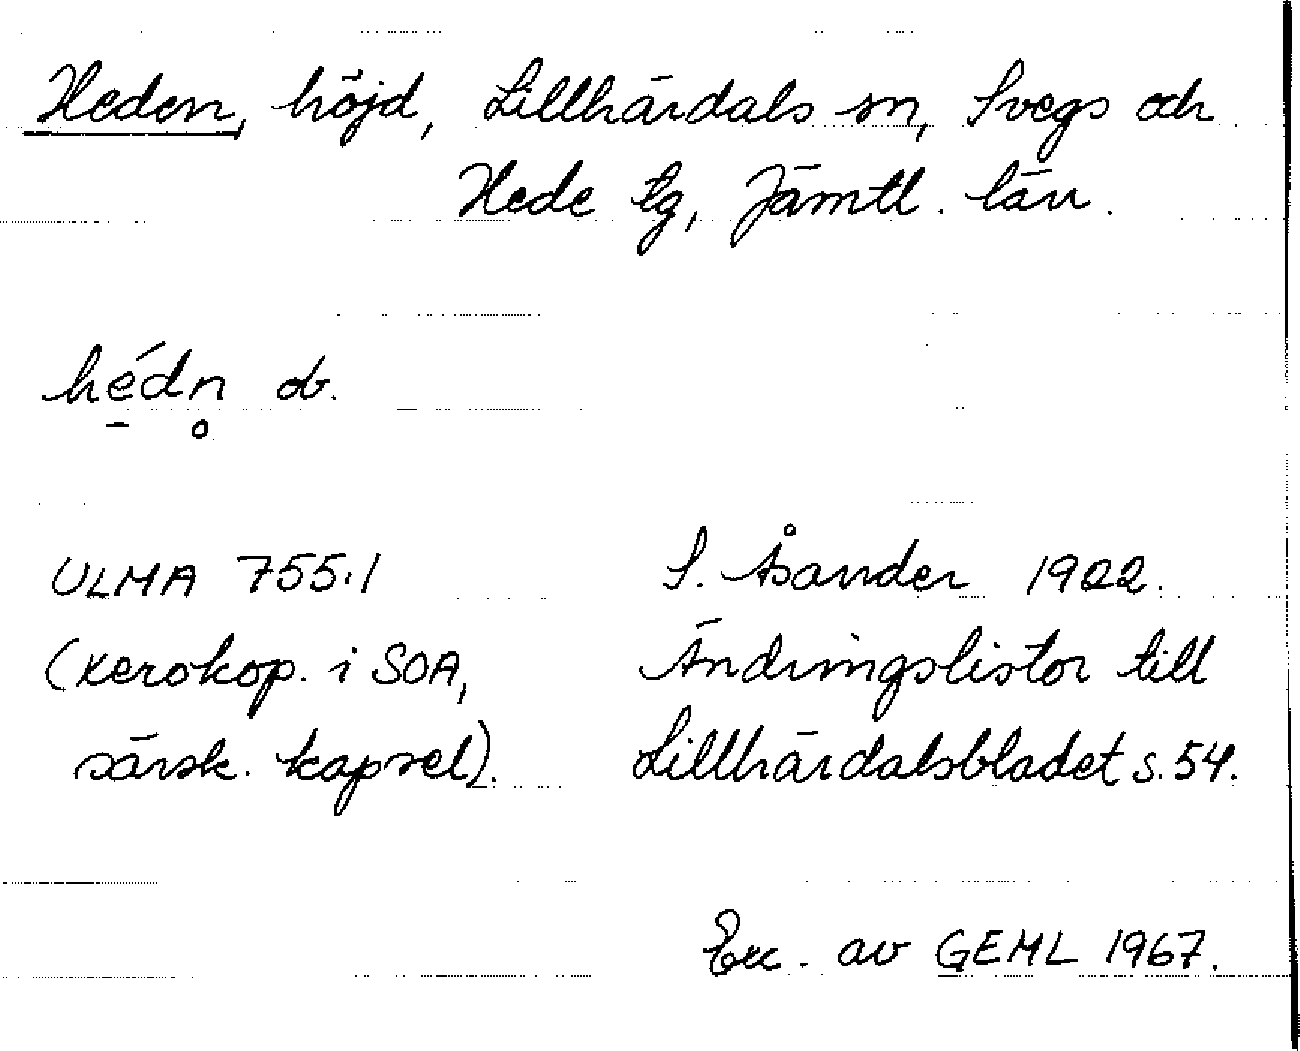 Heden, höjd, Lillhärdals sn, Svegs och
Hede tg, Jämtl. län.
hé̱dn̥ ob.
ULMA 755:1
(xerokop. i SOA,
särsk. kapsel).
S. Åsander 1922.
Ändringslistor till
Lillhärdalsbladet s. 54.
Exc. av GEML 1967.